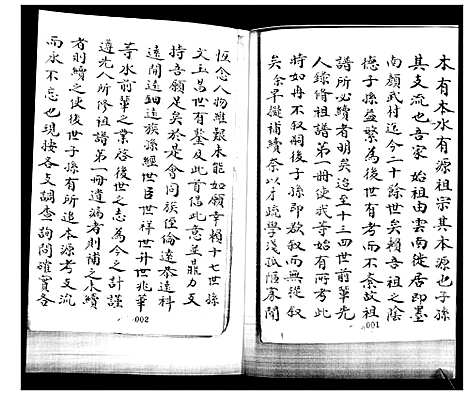 木有本水有源祖宗其本源也子孫
其支流也吾家 始祖由雲南徙居即墨
南顏武村迄今二十餘世矣賴吾祖之陰
德子孫益繁為後世有考而不紊故祖
譜所必續者明矣迨至十三四世前輩先
人錄脩祖譜第一冊使我等始有所考此
時如冉不叙嗣後子孫即欲叙而無從叙
矣余早擬補續奈以才疏學淺孤陋寡聞
001
恆念人物維艱未能如願幸賴十七世孫
文玉昌世有鑒及此首倡此意並鼎力支
持吾願足矣於是會同族侄倫遠恭遠科
遠閣遠細遠族孫經世臣世祥世升世兆華
等水前輩之業啟後世之志為今之計謹
遵先人所修祖譜第一冊遺漏者則補之未續
者則續之使後世子孫有所追本源考支流
而永不忘也現按各支調查詢問確實吾
002